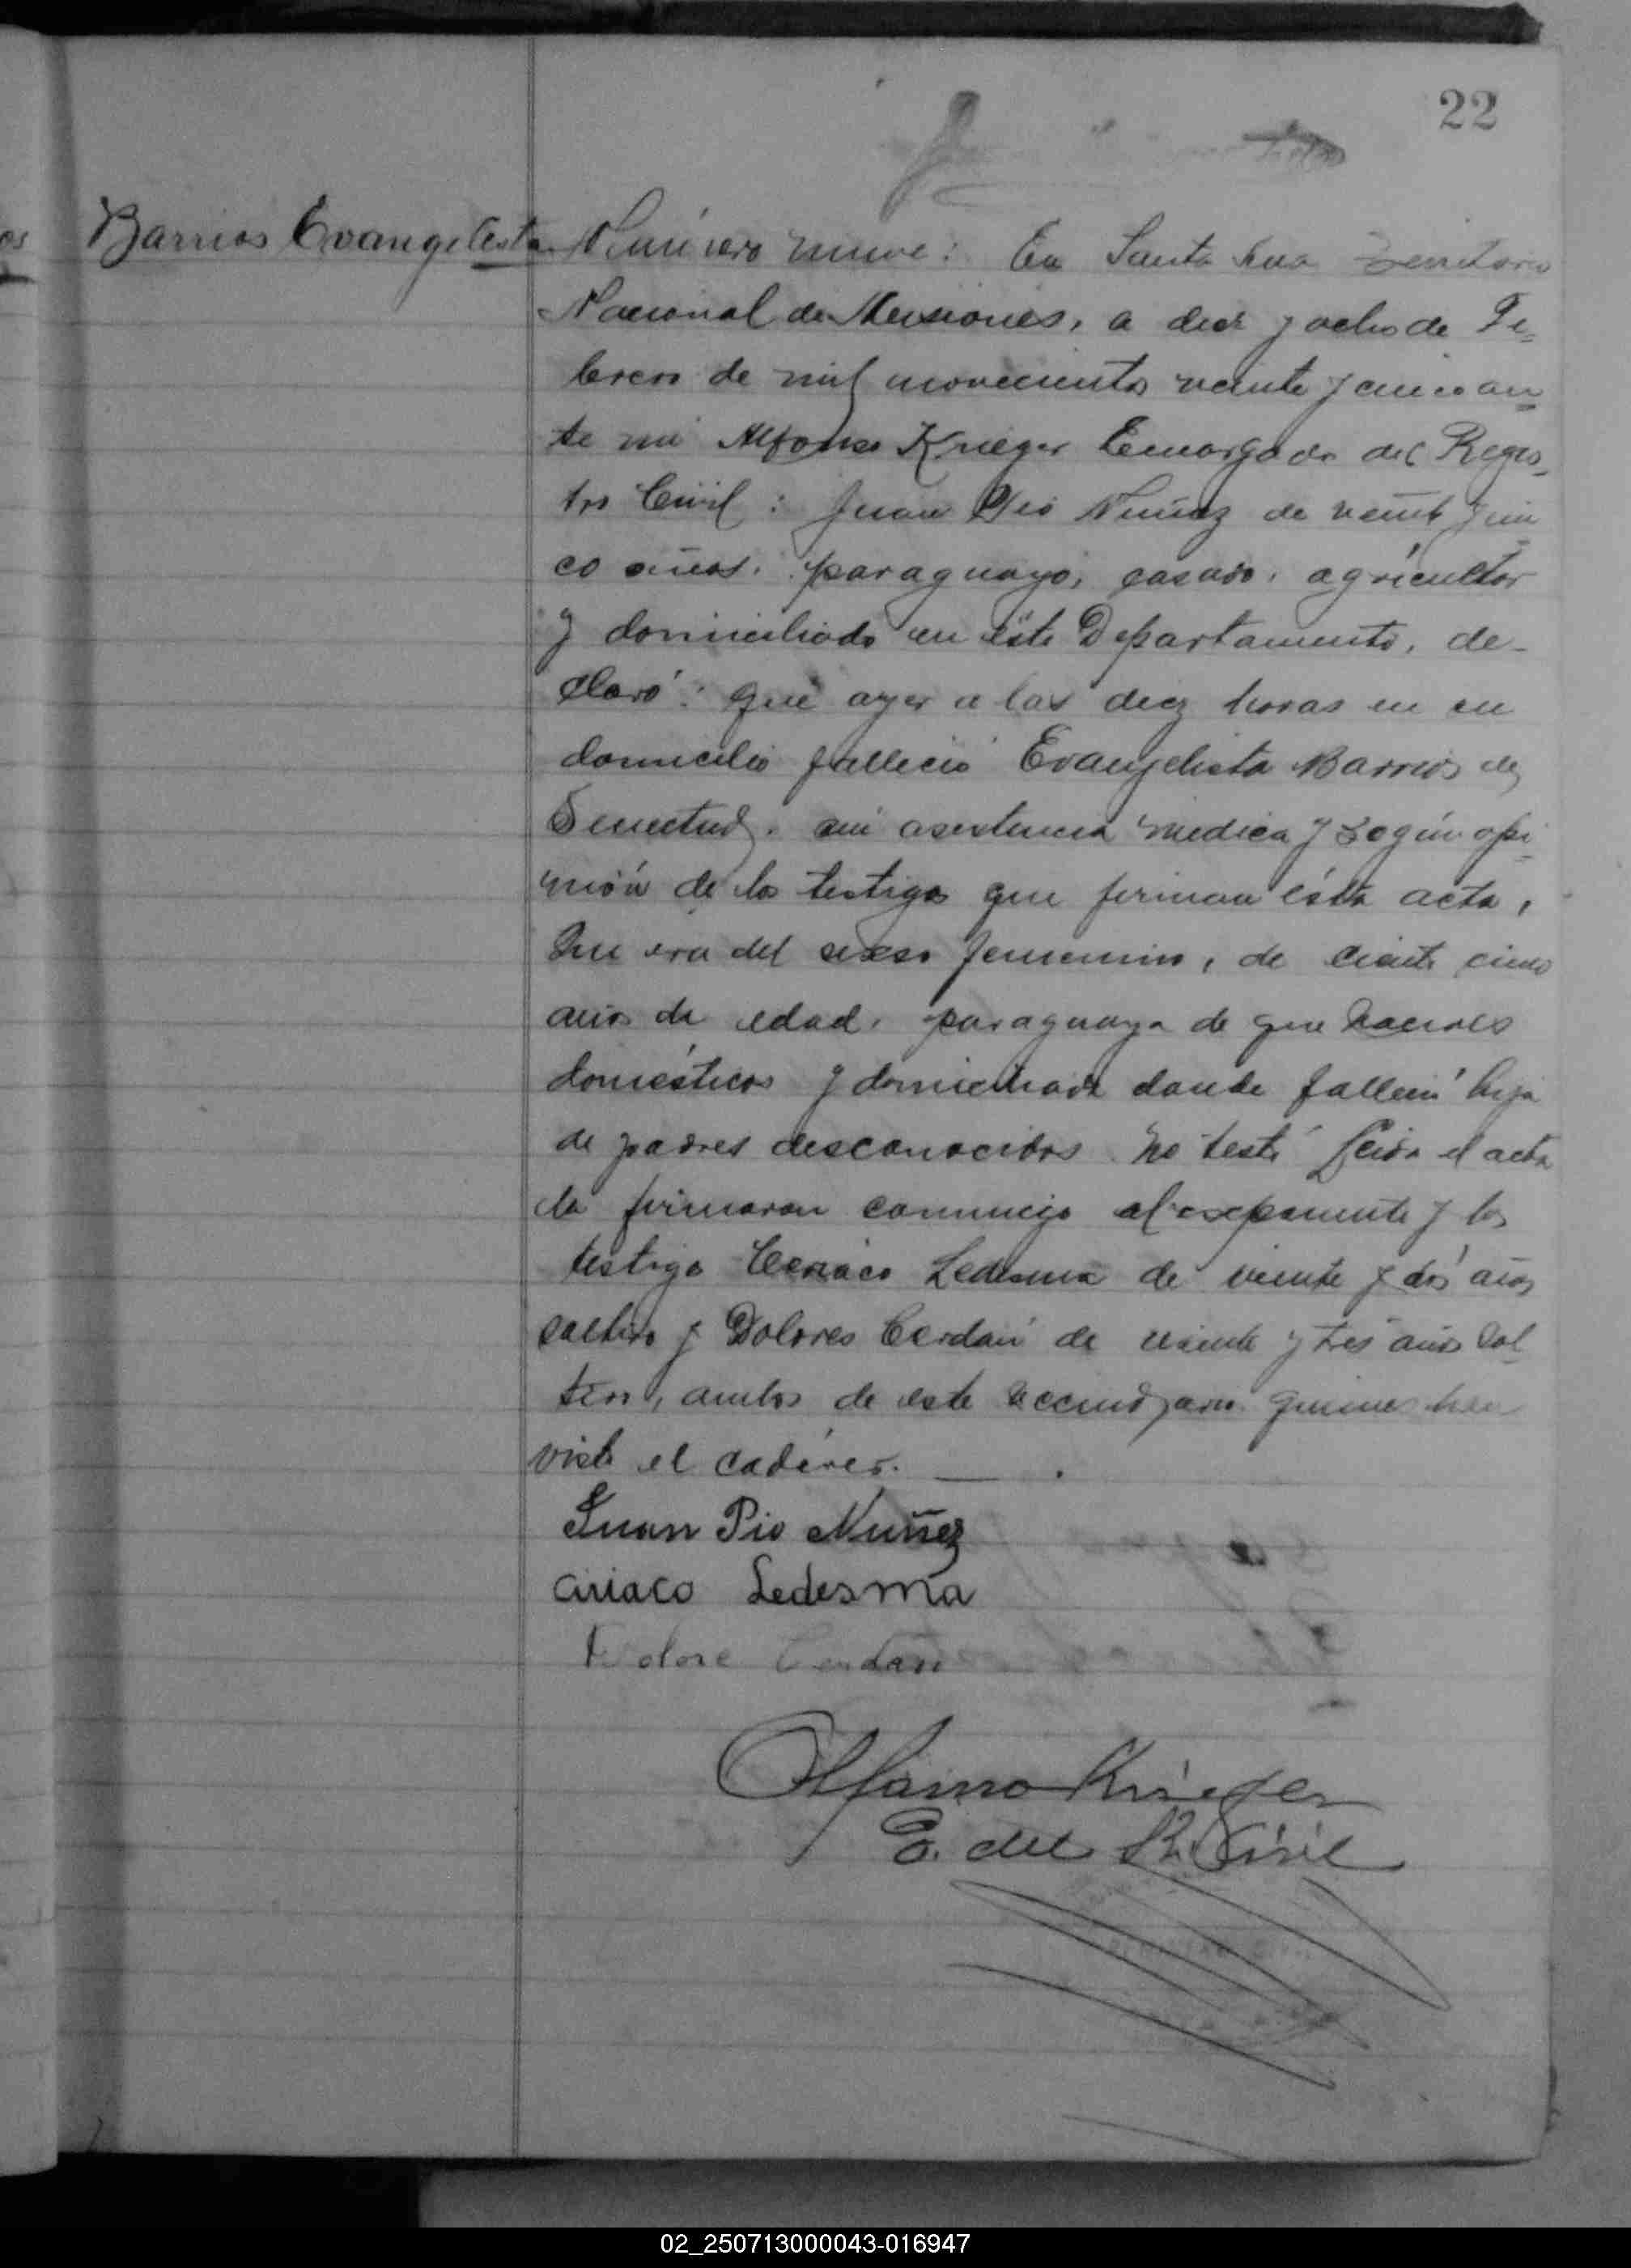 22
Barrios Evangelista
Número nueve: En Santa Ana Territorio
Nacional de Misiones, a diez y ocho de Fe-
brero de mil novecientos veinte y cinco an-
te mi Alfonso Krieger Encargado del Regis-
tro Civil: Juan Pio Nuñez de veinte y cin
co años, paraguayo, casado, agricultor
y domiciliado en éste Departamento, de-
claró: que ayer a las diez horas en su
domicilio falleció Evangelista Barrios de
Senectud, sin asistencia medica y según opi-
nión de los testigos que firman ésta acta,
Que era del sexo femenino, de ciento cinco
años de edad, paraguaya de que haceres
domésticos y domiciliada donde falleció hija
de padres desconocidos No testó Leida el acta
la firmaron conmigo el exponente y los
testigo Ceriaco Ledesma de veinte y dos años
soltero y Dolores Cerdan de veinte y tres años sol-
tero, ambos de este vecindario quienes han
visto el cadáver.
Juan Pio Nuñez
Ciriaco Ledesma
Dolore Cerdan
Alfonso Krieger
E. del R. Civil
02_250713000043-016947